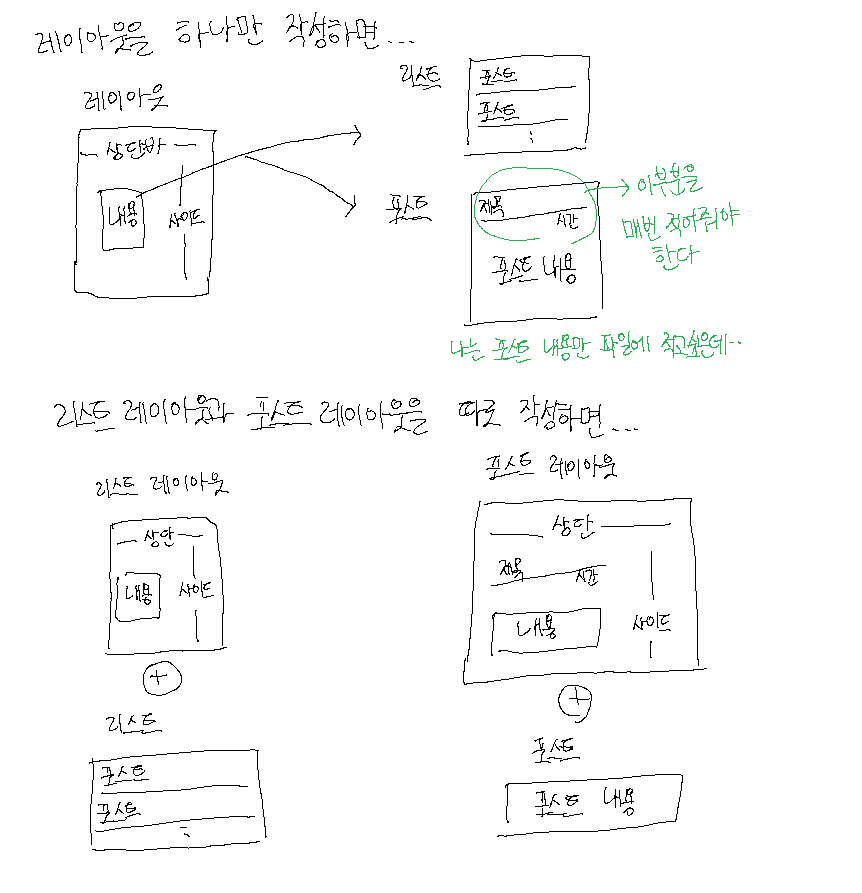 레이아웃을 하나만 작성하면...
레이아웃
상단바
내용
사이드
리스트
포스트
포스트
:
포스트
제목
시간
포스트 내용
이부분을
매번 적어줘야
한다
나는 포스트 내용만 파일에 적고싶은데..
리스트 레이아웃과 포스트 레이아웃을 따로 작성하면...
리스트 레이아웃
상단
내용
사이드
+
리스트
포스트
포스트
:
포스트 레이아웃
상단
제목
시간
내용
사이드
+
포스트
포스트 내용